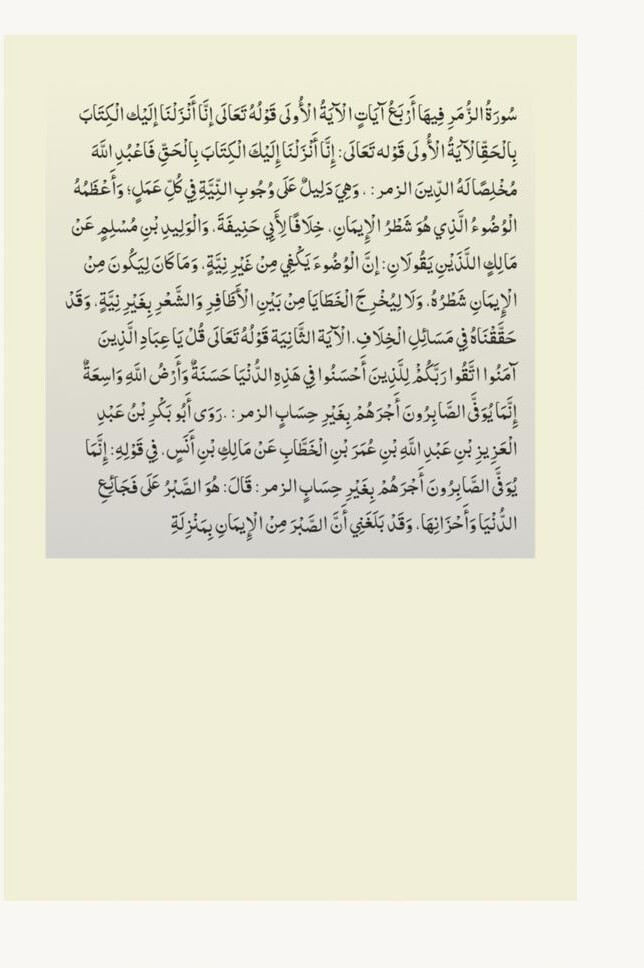 سُورَةُ الزُّمَرِ فِيهَا أَرْبَعُ آيَاتٍ الْآيَةُ الْأُولَى قَوْلُهُ تَعَالَى إنَّا أَنْزَلْنَا إلَيْك الْكِتَابَ
بِالْحَقِّالْآيَةُ الْأُولَى قَوْله تَعَالَى: إِنَّا أَنْزَلْنَا إِلَيْكَ الْكِتَابَ بِالْحَقِّ فَاعْبُدِ اللَّهَ
مُخْلِصًا لَهُ الدِّينَ الزمر: . وَهِيَ دَلِيلٌ عَلَى وُجُوبِ النِّيَّةِ فِي كُلِّ عَمَلٍ؛ وَأَعْظَمُهُ
الْوُضُوءُ الَّذِي هُوَ شَطْرُ الْإِيمَانِ، خِلَافًا لِأَبِي حَنِيفَةَ، وَالْوَلِيدِ بْنِ مُسْلِمٍ عَنْ
مَالِكٍ اللَّذَيْنِ يَقُولَانِ: إنَّ الْوُضُوءَ يَكْفِي مِنْ غَيْرِ نِيَّةٍ، وَمَا كَانَ لِيَكُونَ مِنْ
الْإِيمَانِ شَطْرُهُ، وَلَا لِيُخْرِجَ الْخَطَايَا مِنْ بَيْنِ الْأَظَافِرِ وَالشَّعْرِ بِغَيْرِ نِيَّةٍ، وَقَدْ
حَقَّقْنَاهُ فِي مَسَائِلِ الْخِلَافِ.الْآيَة الثَّانِيَة قَوْلُهُ تَعَالَى قُلْ يَا عِبَادِ الَّذِينَ
آمَنُوا اتَّقُوا رَبَّكُمْ لِلَّذِينَ أَحْسَنُوا فِي هَذِهِ الدُّنْيَا حَسَنَةٌ وَأَرْضُ اللَّهِ وَاسِعَةٌ
إِنَّمَا يُوَفَّى الصَّابِرُونَ أَجْرَهُمْ بِغَيْرِ حِسَابٍ الزمر: .رَوَى أَبُو بَكْرِ بْنُ عَبْدِ
الْعَزِيزِ بْنِ عَبْدِ اللَّهِ بْنِ عُمَرَ بْنِ الْخَطَّابِ عَنْ مَالِكِ بْنِ أَنَسٍ، فِي قَوْلِهِ: إِنَّمَا
يُوَفَّى الصَّابِرُونَ أَجْرَهُمْ بِغَيْرِ حِسَابٍ الزمر: قَالَ: هُوَ الصَّبْرُ عَلَى فَجَائِعِ
الدُّنْيَا وَأَحْزَانِهَا، وَقَدْ بَلَغَنِي أَنَّ الصَّبْرَ مِنْ الْإِيمَانِ بِمَنْزِلَةِ